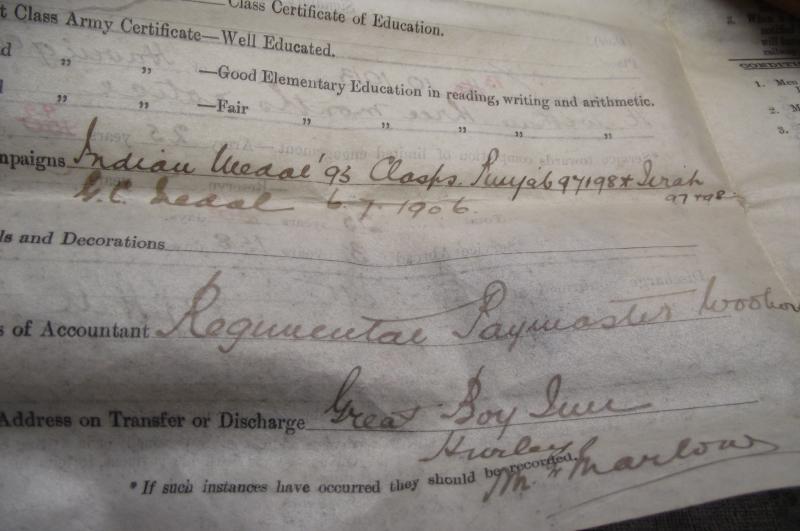 Class Certificate of Education.
t Class Army Certificate—Well Educated.
d „ „ —Good Elementary Education in reading, writing and arithmetic.
„ „ —Fair „ „ „ „ „
mpaigns Indian Medal '95 Clasps Punjab 97/98 & Tirah
97+98
G.C. Medal 6.7.1906.
ls and Decorations
s of Accountant Regimental Paymaster
Address on Transfer or Discharge Great Boy Inn
Hurley
Nr Marlow
* If such instances have occurred they should be recorded.
3.
CONDITI
1. Men
2. M
3.